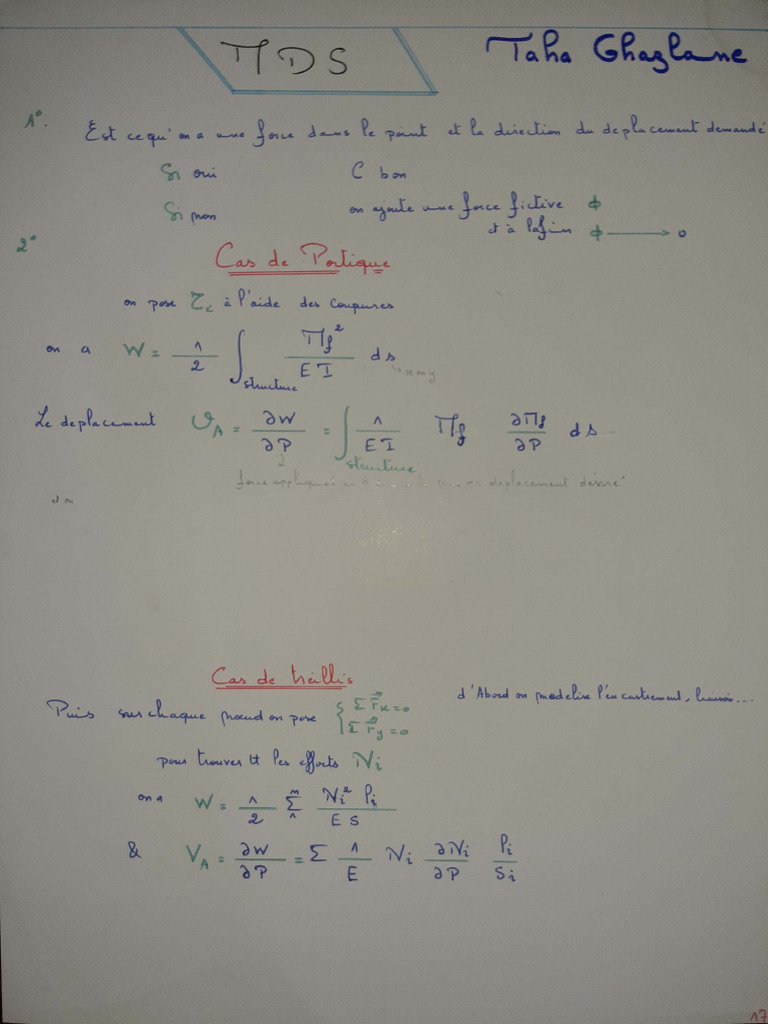 MDS
Taha Ghazlane
1°. Est ce qu'on a une force dans le point et la direction du deplacement demandé
Si oui C bon
Si non on ajoute une force fictive ϕ
et à la fin ϕ → 0
2°
Cas de Portique
on pose τc à l'aide des coupures
on a W = 1/2 ∫structure Mf²/EI ds → x ou y
Le deplacement υA = ∂W/∂P = ∫structure 1/EI Mf ∂Mf/∂P ds
force appliquée deplacement désiré
et on
Cas de treillis
d'Abord on modelise l'encastrement, liaison....
Puis sur chaque nœud on pose { ΣFx = 0
ΣFy = 0
pour trouver tt les efforts Ni
on a W = 1/2 Σ₁ⁿ Ni² li / ES
& VA = ∂W/∂P = Σ 1/E Ni ∂Ni/∂P li/Si
17